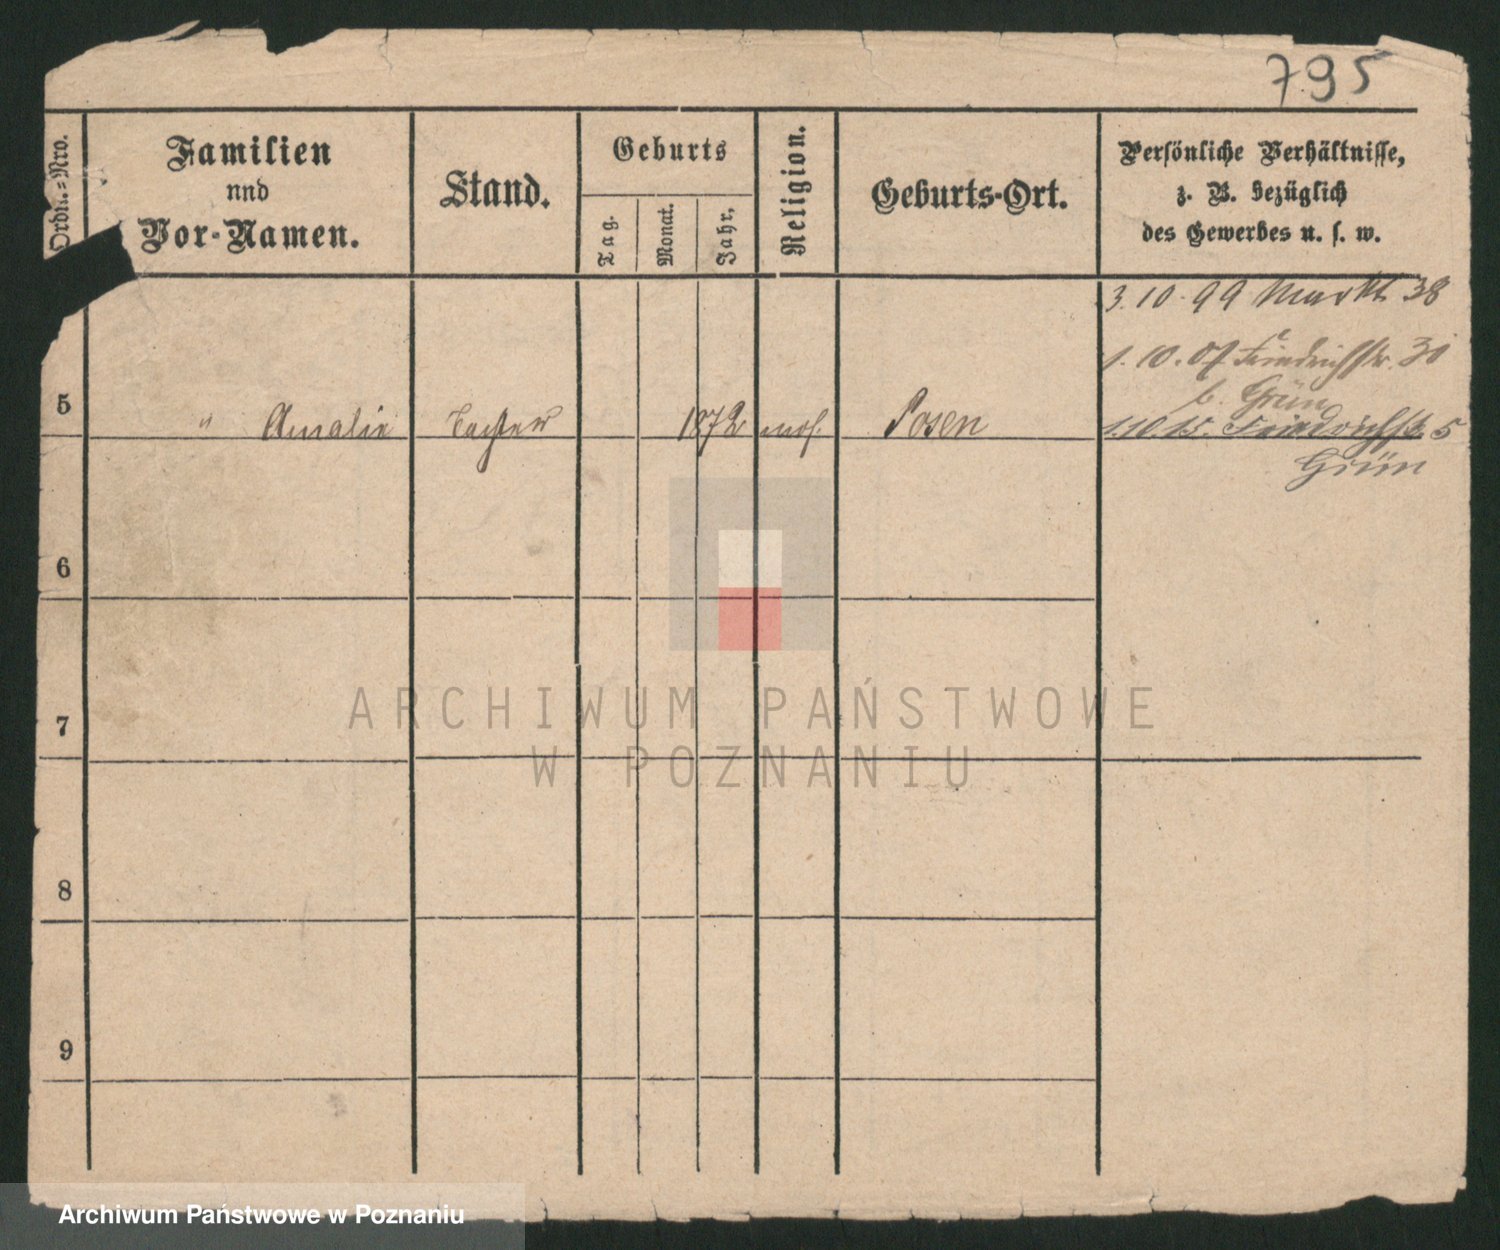 795
Ordn.-Nro.
Familien
nnd
Vor-Namen.
Stand.
Geburts
Tag.
Monat.
Jahr,
Religion.
Geburts-Ort.
Persönliche Verhältnisse,
z. B. bezüglich
des Gewerbes u. s. w.
3.10.99 Markt 38
1.10.07 Friedrichstr. 30
b. Grün
5 " Amalie Tochter 1872 mos. Posen 1.10.15. Friedrichstr. 5
Grün
6
7
8
9
ARCHIWUM PAŃSTWOWE
W POZNANIU
Archiwum Państwowe w Poznaniu